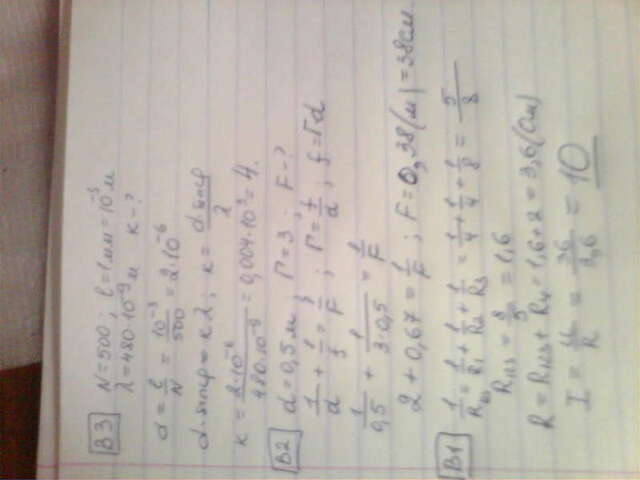 В3 N=500; l=1мм=10⁻³м
λ=480·10⁻⁹м к-?
d = l/N = 10⁻³/500 = 2·10⁻⁶
d·sinφ=кλ; к = d·sinφ/λ
к = 2·10⁻⁶/480·10⁻⁹ = 0,004·10³ = 4.
В2 d=0,5м; Г=3; F-?
1/d + 1/f = 1/F; Г = f/d; f=Гd
1/0,5 + 1/3·0,5 = 1/F
2+0,67 = 1/F; F=0,38(м)=38см.
В1 1/R₁₂₃ = 1/R₁ + 1/R₂ + 1/R₃ = 1/4 + 1/4 + 1/8 = 5/8
R₁₂₃ = 8/5 = 1,6
R = R₁₂₃ + R₄ = 1,6+2 = 3,6(Ом)
I = U/R = 36/3,6 = 10